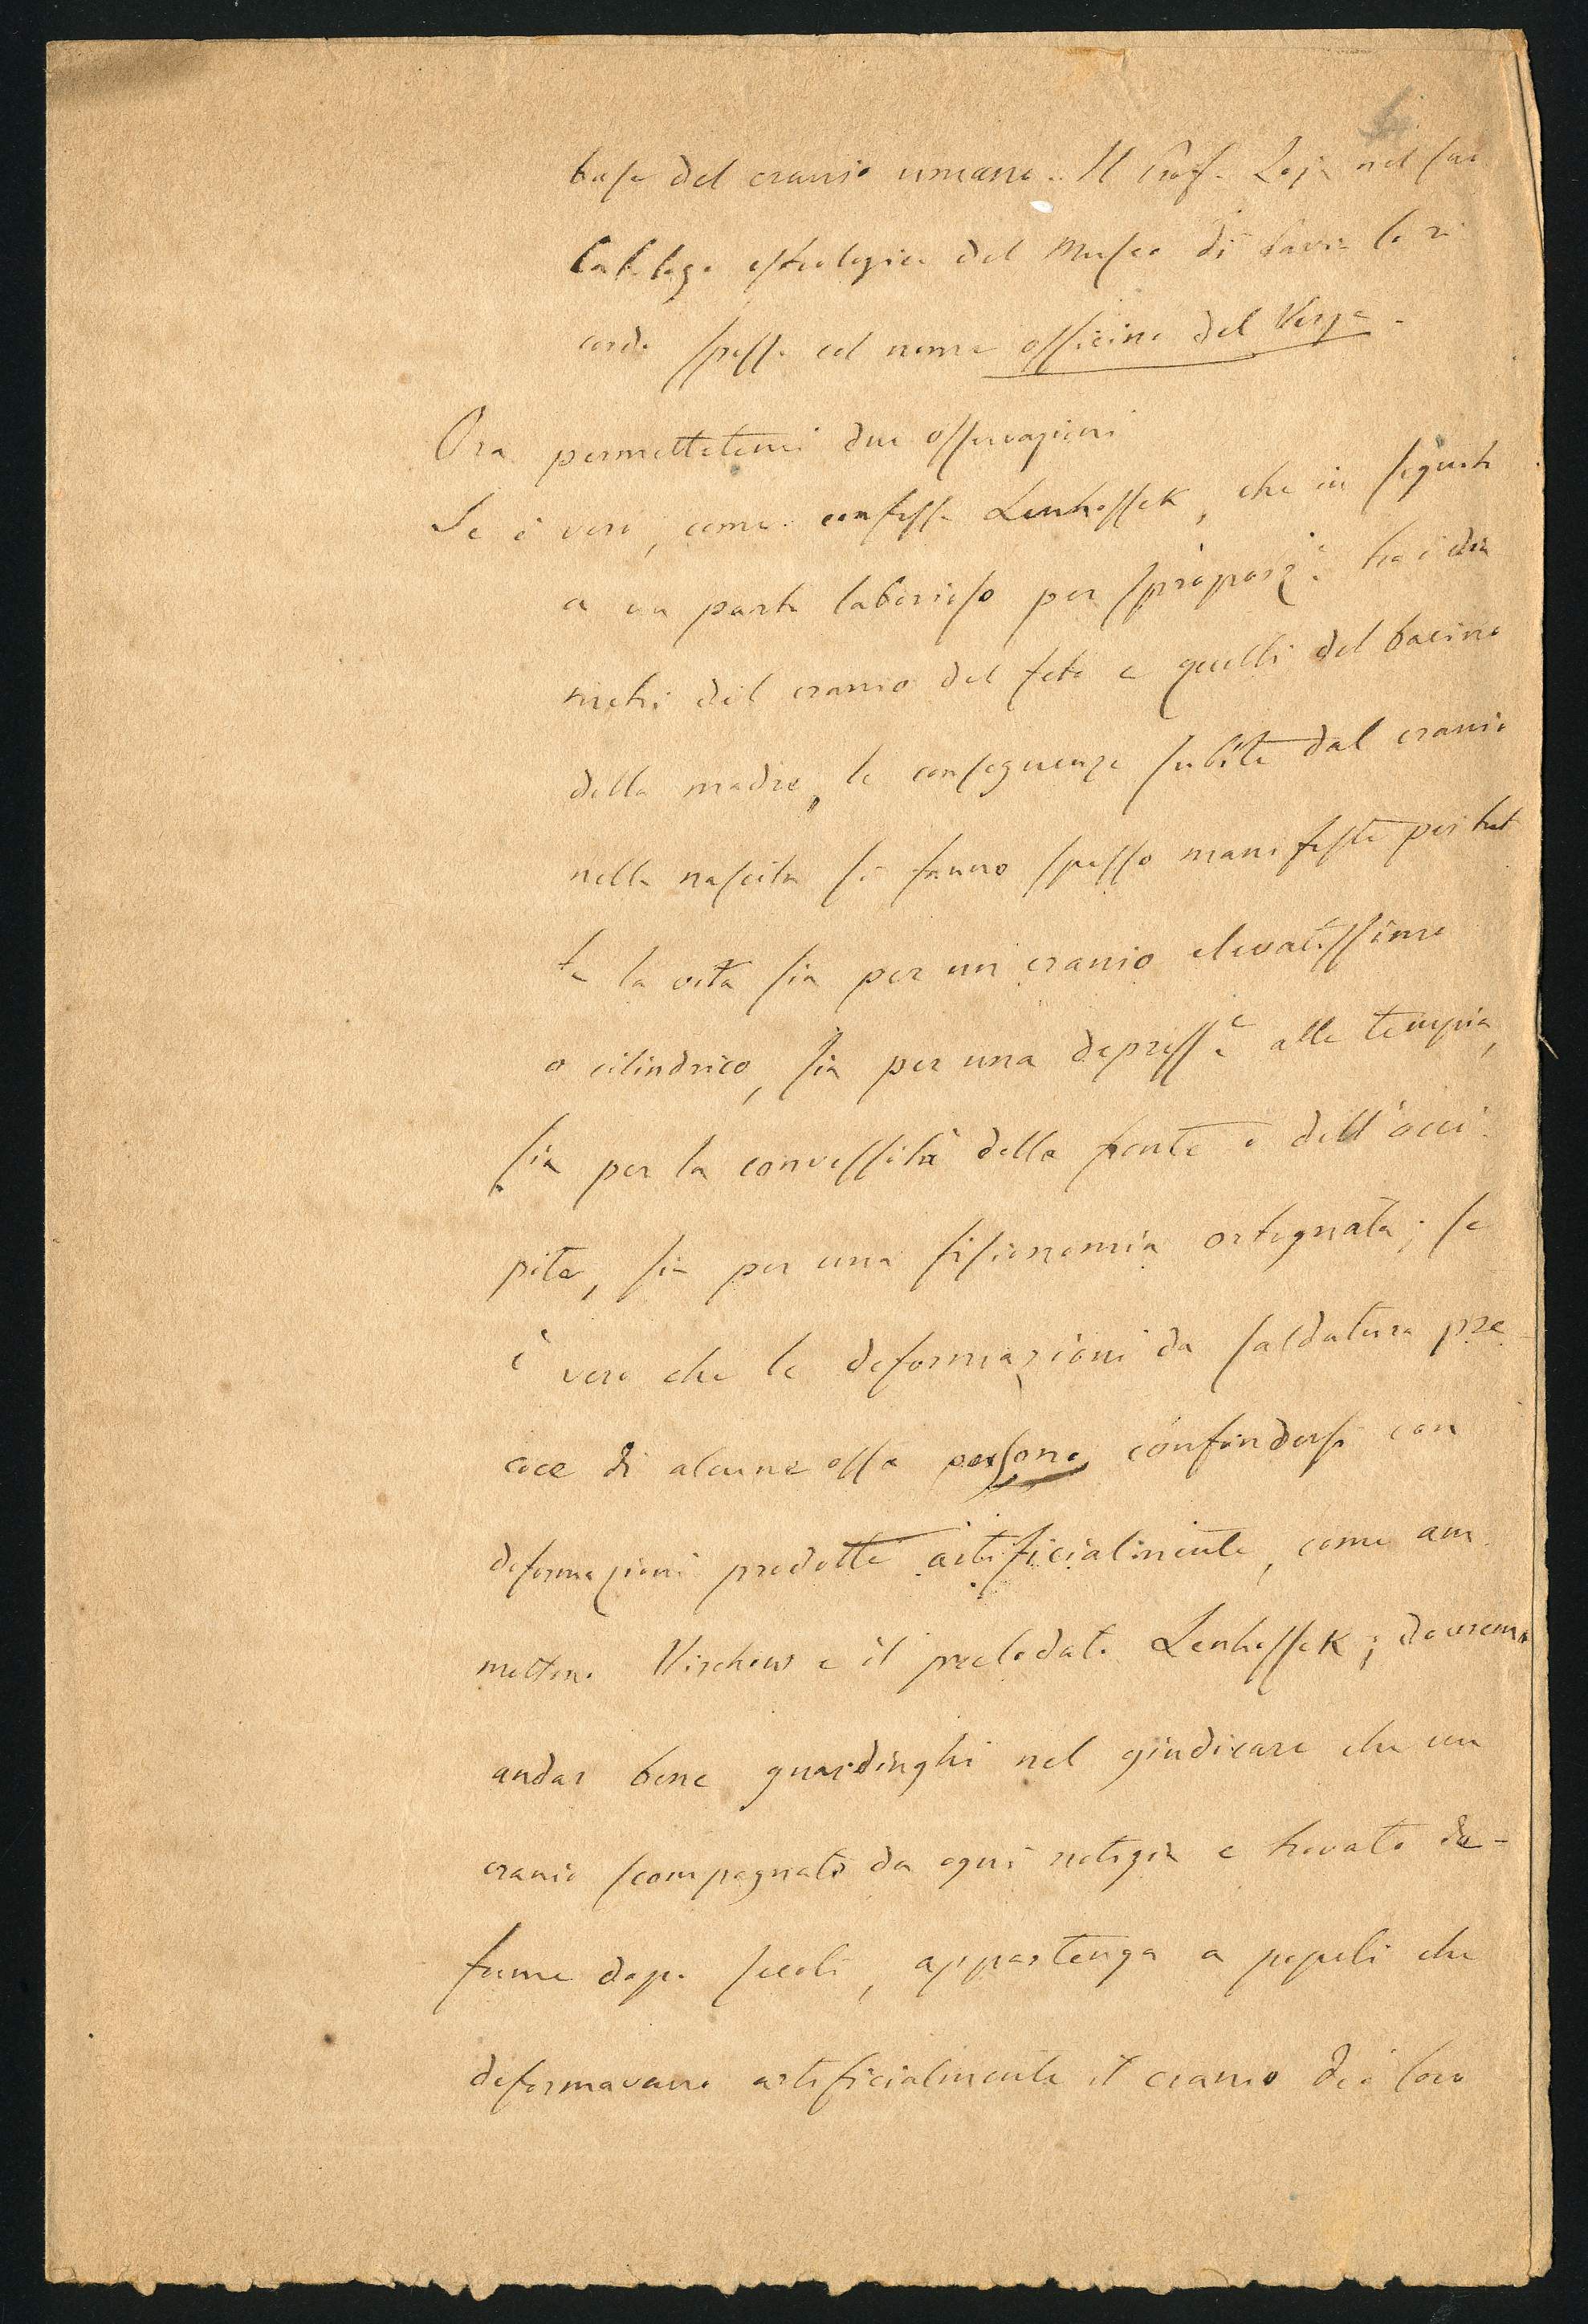 base del cranio umano. Il Prof. Zoja nel suo
Catalogo osteologico del Museo di Pavia lo ri
corda spesso col nome officina del Verga.
Ora permettetemi due osservazioni
Se è vero, come confessa Lenhossek, che in seguito
a un parto laborioso per sproporz.e tra i dia
metri del cranio del feto e quelli del bacino
della madre, le conseguenze subite dal cranio
nella nascita si fanno spesso manifeste per tut
ta la vita sia per un cranio elevatissimo
o cilindrico, sia per una depress.e alle tempia,
sia per la convessità della fronte o dell'occi
pite, sia per una fisionomia ortognata; se
è vero che le deformazioni da saldatura pre
coce di alcune ossa possono confondersi con
deformazioni prodotte artificialmente, come am
mettono Virchow e il prelodato Lenhossek; dovremo
andar bene guardinghi nel giudicare che un
cranio scompagnato da ogni notizia e trovato da
fume dopo secoli, appartenga a popoli che
deformavano artificialmente il cranio dei loro